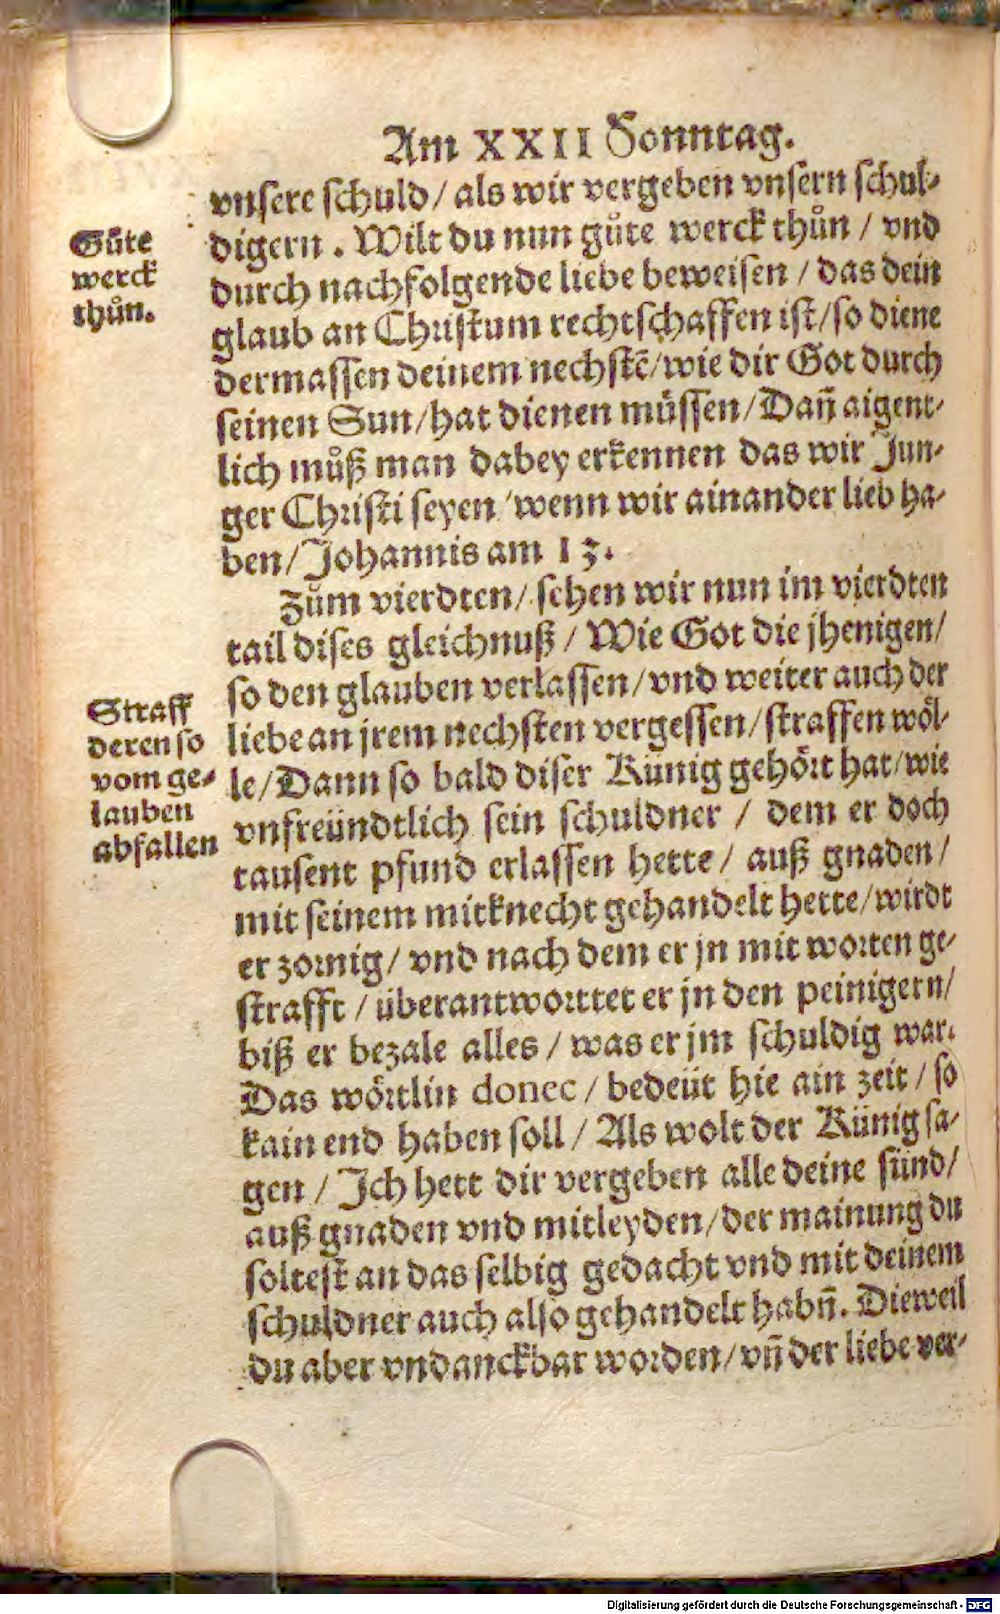 Am XXII Sonntag.
vnsere schuld / als wir vergeben vnsern schul-
digern . Wilt du nun gůte werck thůn / vnd
durch nachfolgende liebe beweisen / das dein
glaub an Christum rechtschaffen ist / so diene
dermassen deinem nechstē / wie dir Got durch
seinen Sun / hat dienen müssen / Dañ aigent-
lich můß man dabey erkennen das wir Jun-
ger Christi seyen / wenn wir ainander lieb ha-
ben / Johannis am 13.
Zům vierdten / sehen wir nun im vierdten
tail dises gleichnuß / Wie Got die jhenigen /
so den glauben verlassen / vnd weiter auch der
liebe an jrem nechsten vergessen / straffen wöl-
le / Dann so bald diser Künig gehört hat / wie
vnfreündtlich sein schuldner / dem er doch
tausent pfund erlassen hette / auß gnaden /
mit seinem mitknecht gehandelt hette / wirdt
er zornig / vnd nach dem er jn mit worten ge-
strafft / überantworttet er jn den peinigern /
biß er bezale alles / was er jm schuldig war.
Das wörtlin donec / bedeüt hie ain zeit / so
kain end haben soll / Als wolt der Künig sa-
gen / Ich hett dir vergeben alle deine sünd /
auß gnaden vnd mitleyden / der mainung du
soltest an das selbig gedacht vnd mit deinem
schuldner auch also gehandelt habñ. Dieweil
du aber vndanckbar worden / vñ der liebe ver-
Gůte
werck
thůn.
Straff
deren so
vom ge-
lauben
abfallen
Digitalisierung gefördert durch die Deutsche Forschungsgemeinschaft - DFG